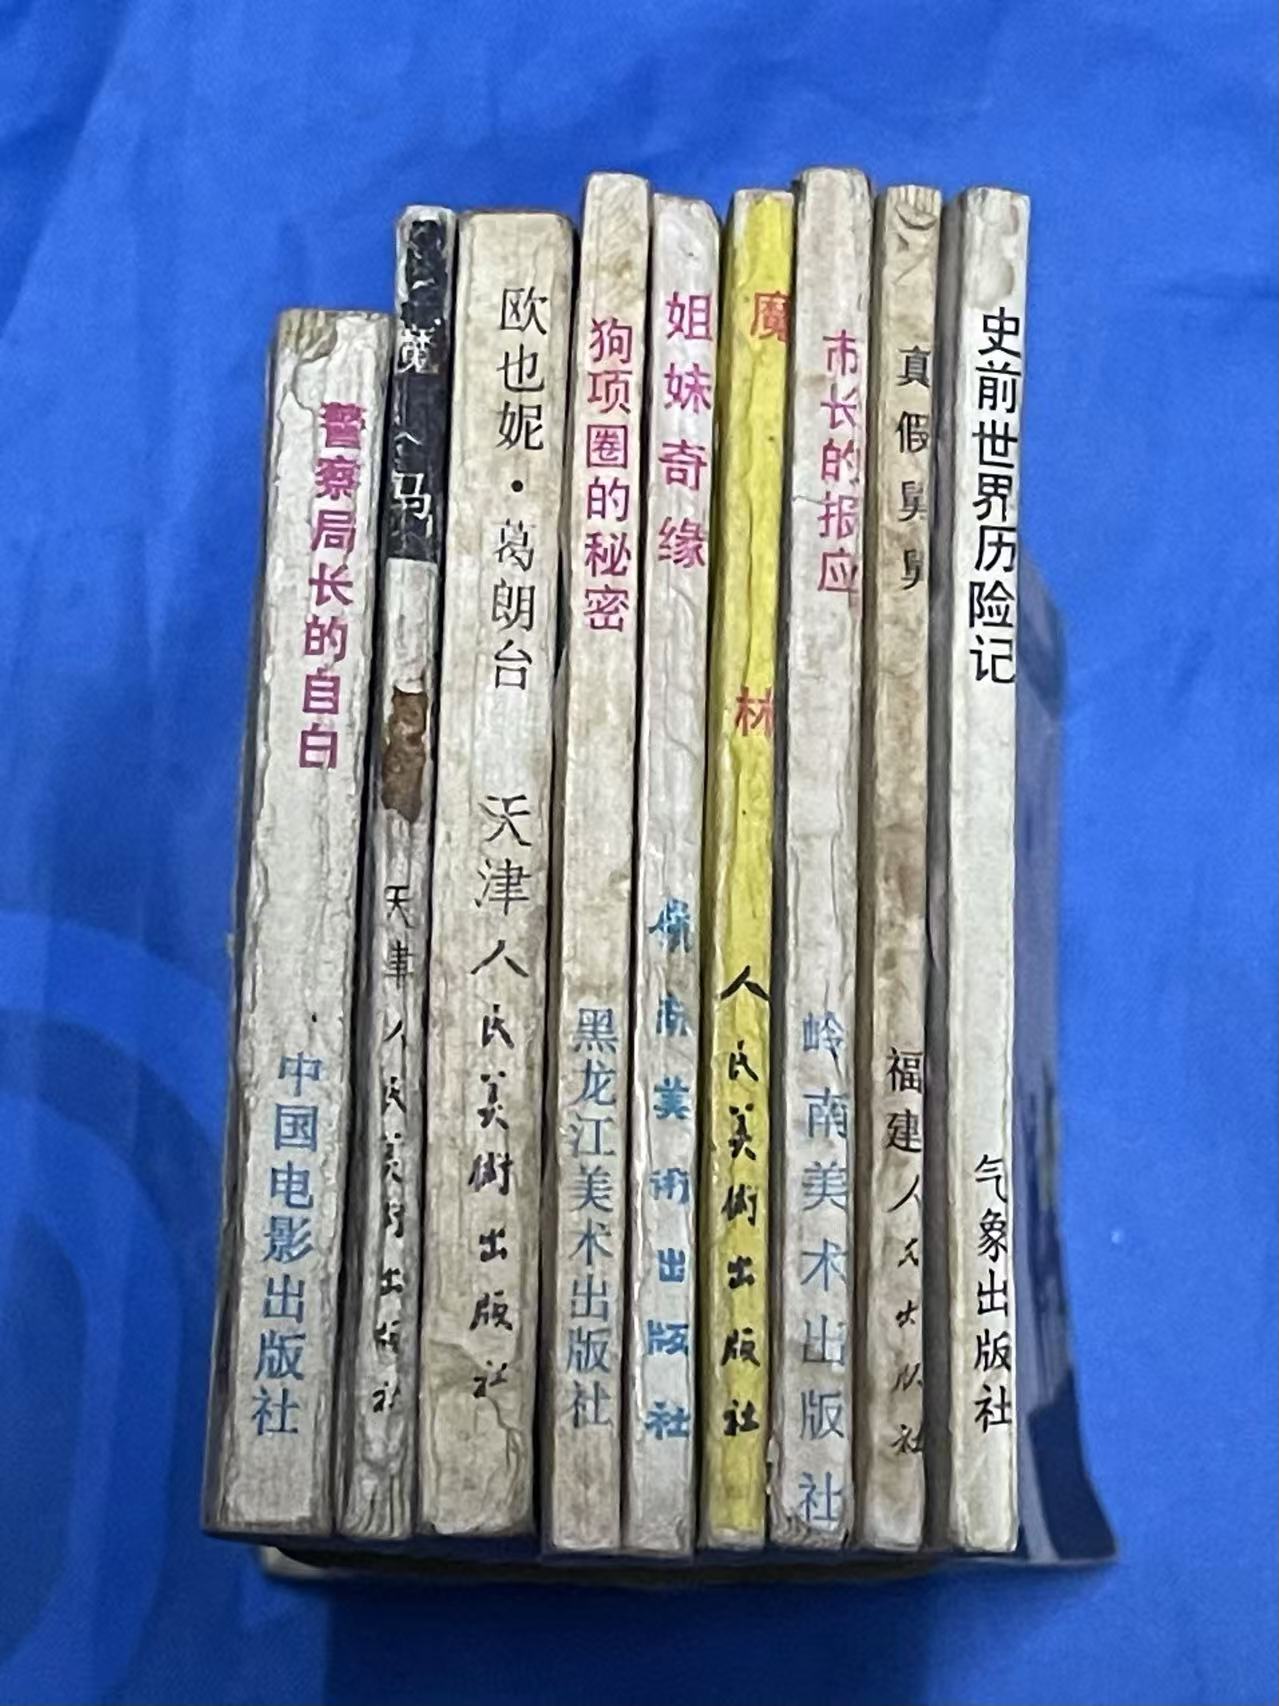 警察局长的自白
中国电影出版社
魔马
天津人民美術出版社
欧也妮·葛朗台
天津人民美術出版社
狗项圈的秘密
黑龙江美术出版社
姐妹奇缘
嶺南美術出版社
魔林
人民美術出版社
市长的报应
岭南美术出版社
真假舅舅
福建人民出版社
史前世界历险记
气象出版社